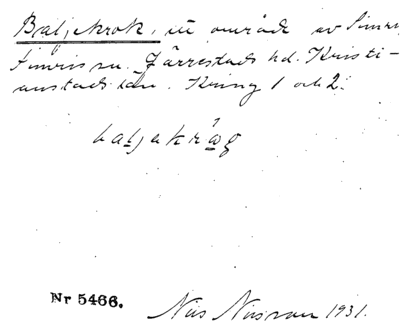 Baljekrok, ett område av Simris,
Simris sn. Järrestads hd. Kristi-
anstads län. Kring 1 och 2.
baljakråg
Nr 5466.
Nils Nilsson 1931.